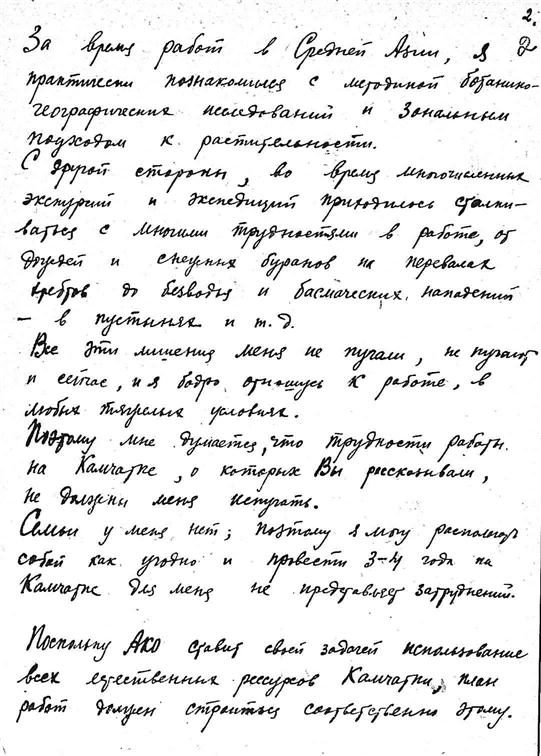 2.
За время работ в Средней Азии, я 2
практически познакомился с методикой ботанико-
географических исследований и зональным
подходом к растительности.
С другой стороны, во время многочисленных
экскурсий и экспедиций приходилось сталки-
ваться с многими трудностями в работе, от
дождей и снежных буранов на перевалах
хребтов до безводья и басмаческих нападений
– в пустынях и т.д.
Все эти лишения меня не пугали, не пугают
и сейчас, и я бодро отношусь к работе, в
любых тяжелых условиях.
Поэтому мне думается, что трудности работы
на Камчатке, о которых Вы рассказывали,
не должны меня испугать.
Семьи у меня нет; поэтому я могу располагать
собой как угодно и провести 3-4 года на
Камчатке для меня не представляет затруднений.
Поскольку АКО ставит своей задачей использование
всех естественных рессурсов Камчатки, план
работ должен строиться соответственно этому.